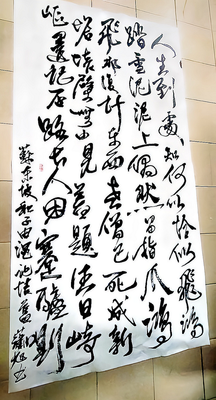 人生到處知何以恰似飛鴻
踏雪泥泥上偶然留指爪鴻
飛那復計东西老僧已死成新
塔壞壁無由見舊題往日崎
嶇還记否路长人困蹇驢嘶
蘇东坡和子由澠池懷舊 書